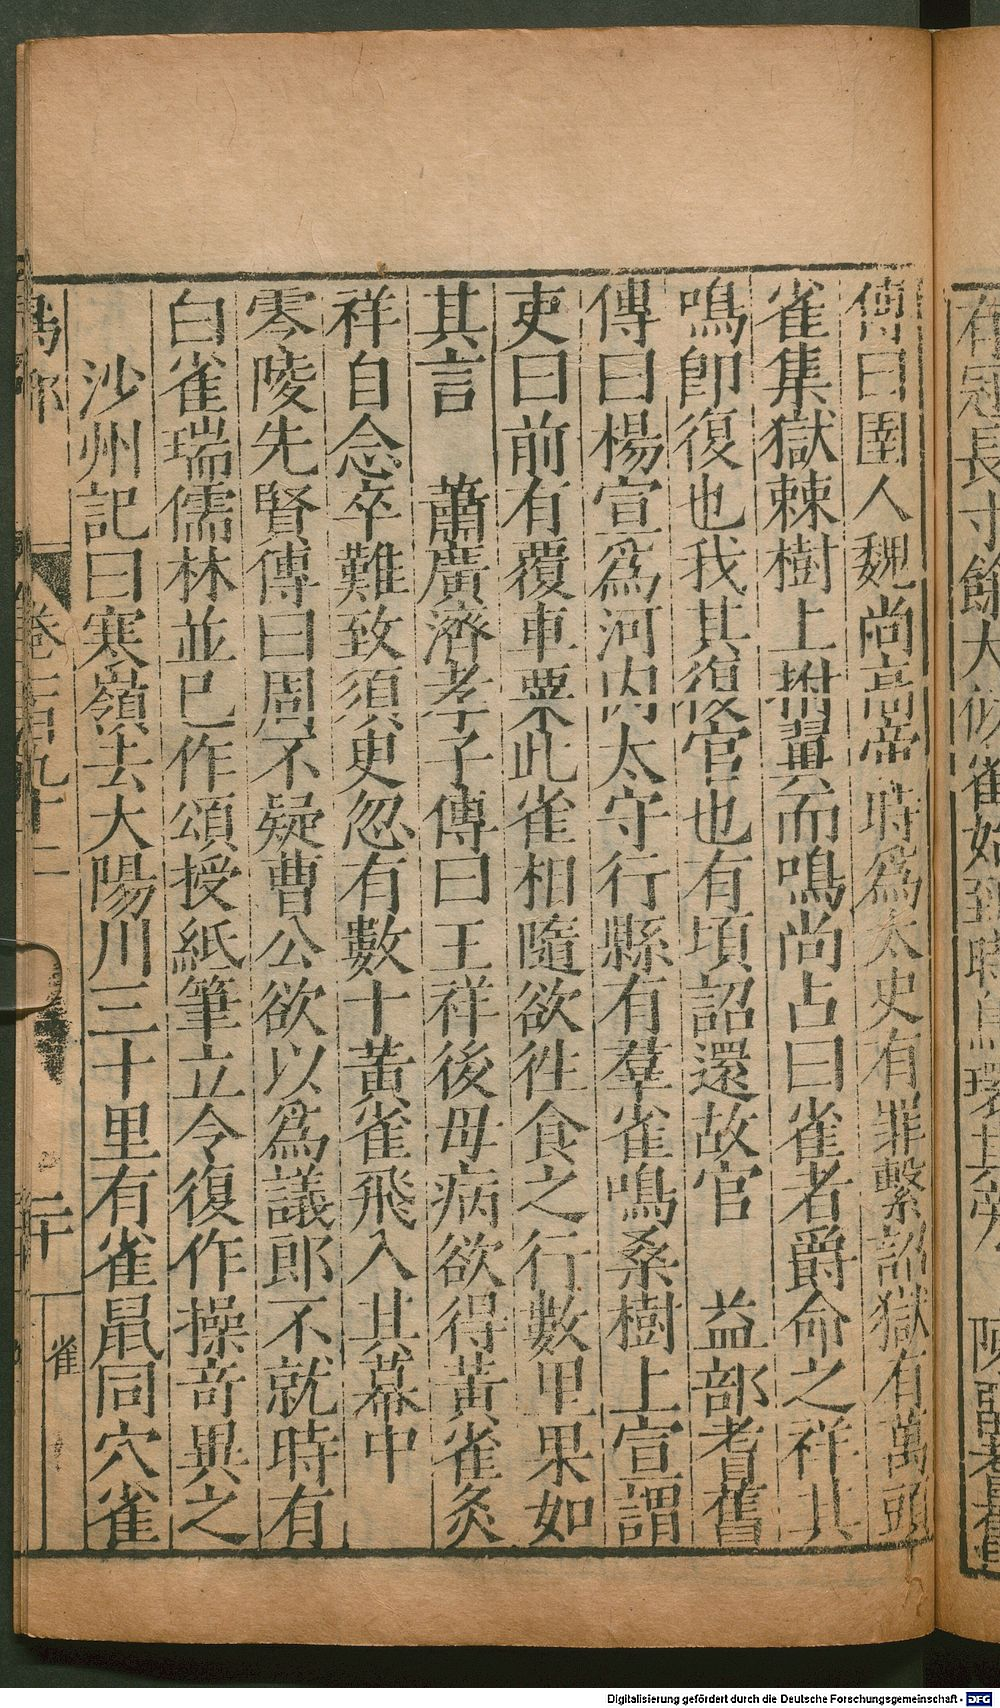 傳曰圉人魏尚高帝時爲太史有罪繫詔獄有萬頭
雀集獄棘樹上拊翼而鳴尚占曰雀者爵命之祥其
鳴即復也我其復官也有項詔還故官　益部耆舊
傳曰楊宣爲河内太守行縣有羣雀鳴桑樹上宣謂
吏曰前有覆車粟此雀相隨欲徃食之行數里果如
其言　蕭廣濟孝子傳曰王祥後母病欲得黃雀炙
祥自念卒難致須臾忽有數十黃雀飛入其幕中
零陵先賢傳曰周不疑曹公欲以爲議郎不就時有
白雀瑞儒林並已作頌授紙筆立令復作操竒異之
沙州記曰寒嶺去大陽川三十里有雀鼠同穴雀
卷三百九十二
二十
雀
在冠長寸餘大如雀始到時自環其旁　陳畱耆舊
Digitalisierung gefördert durch die Deutsche Forschungsgemeinschaft - DFG